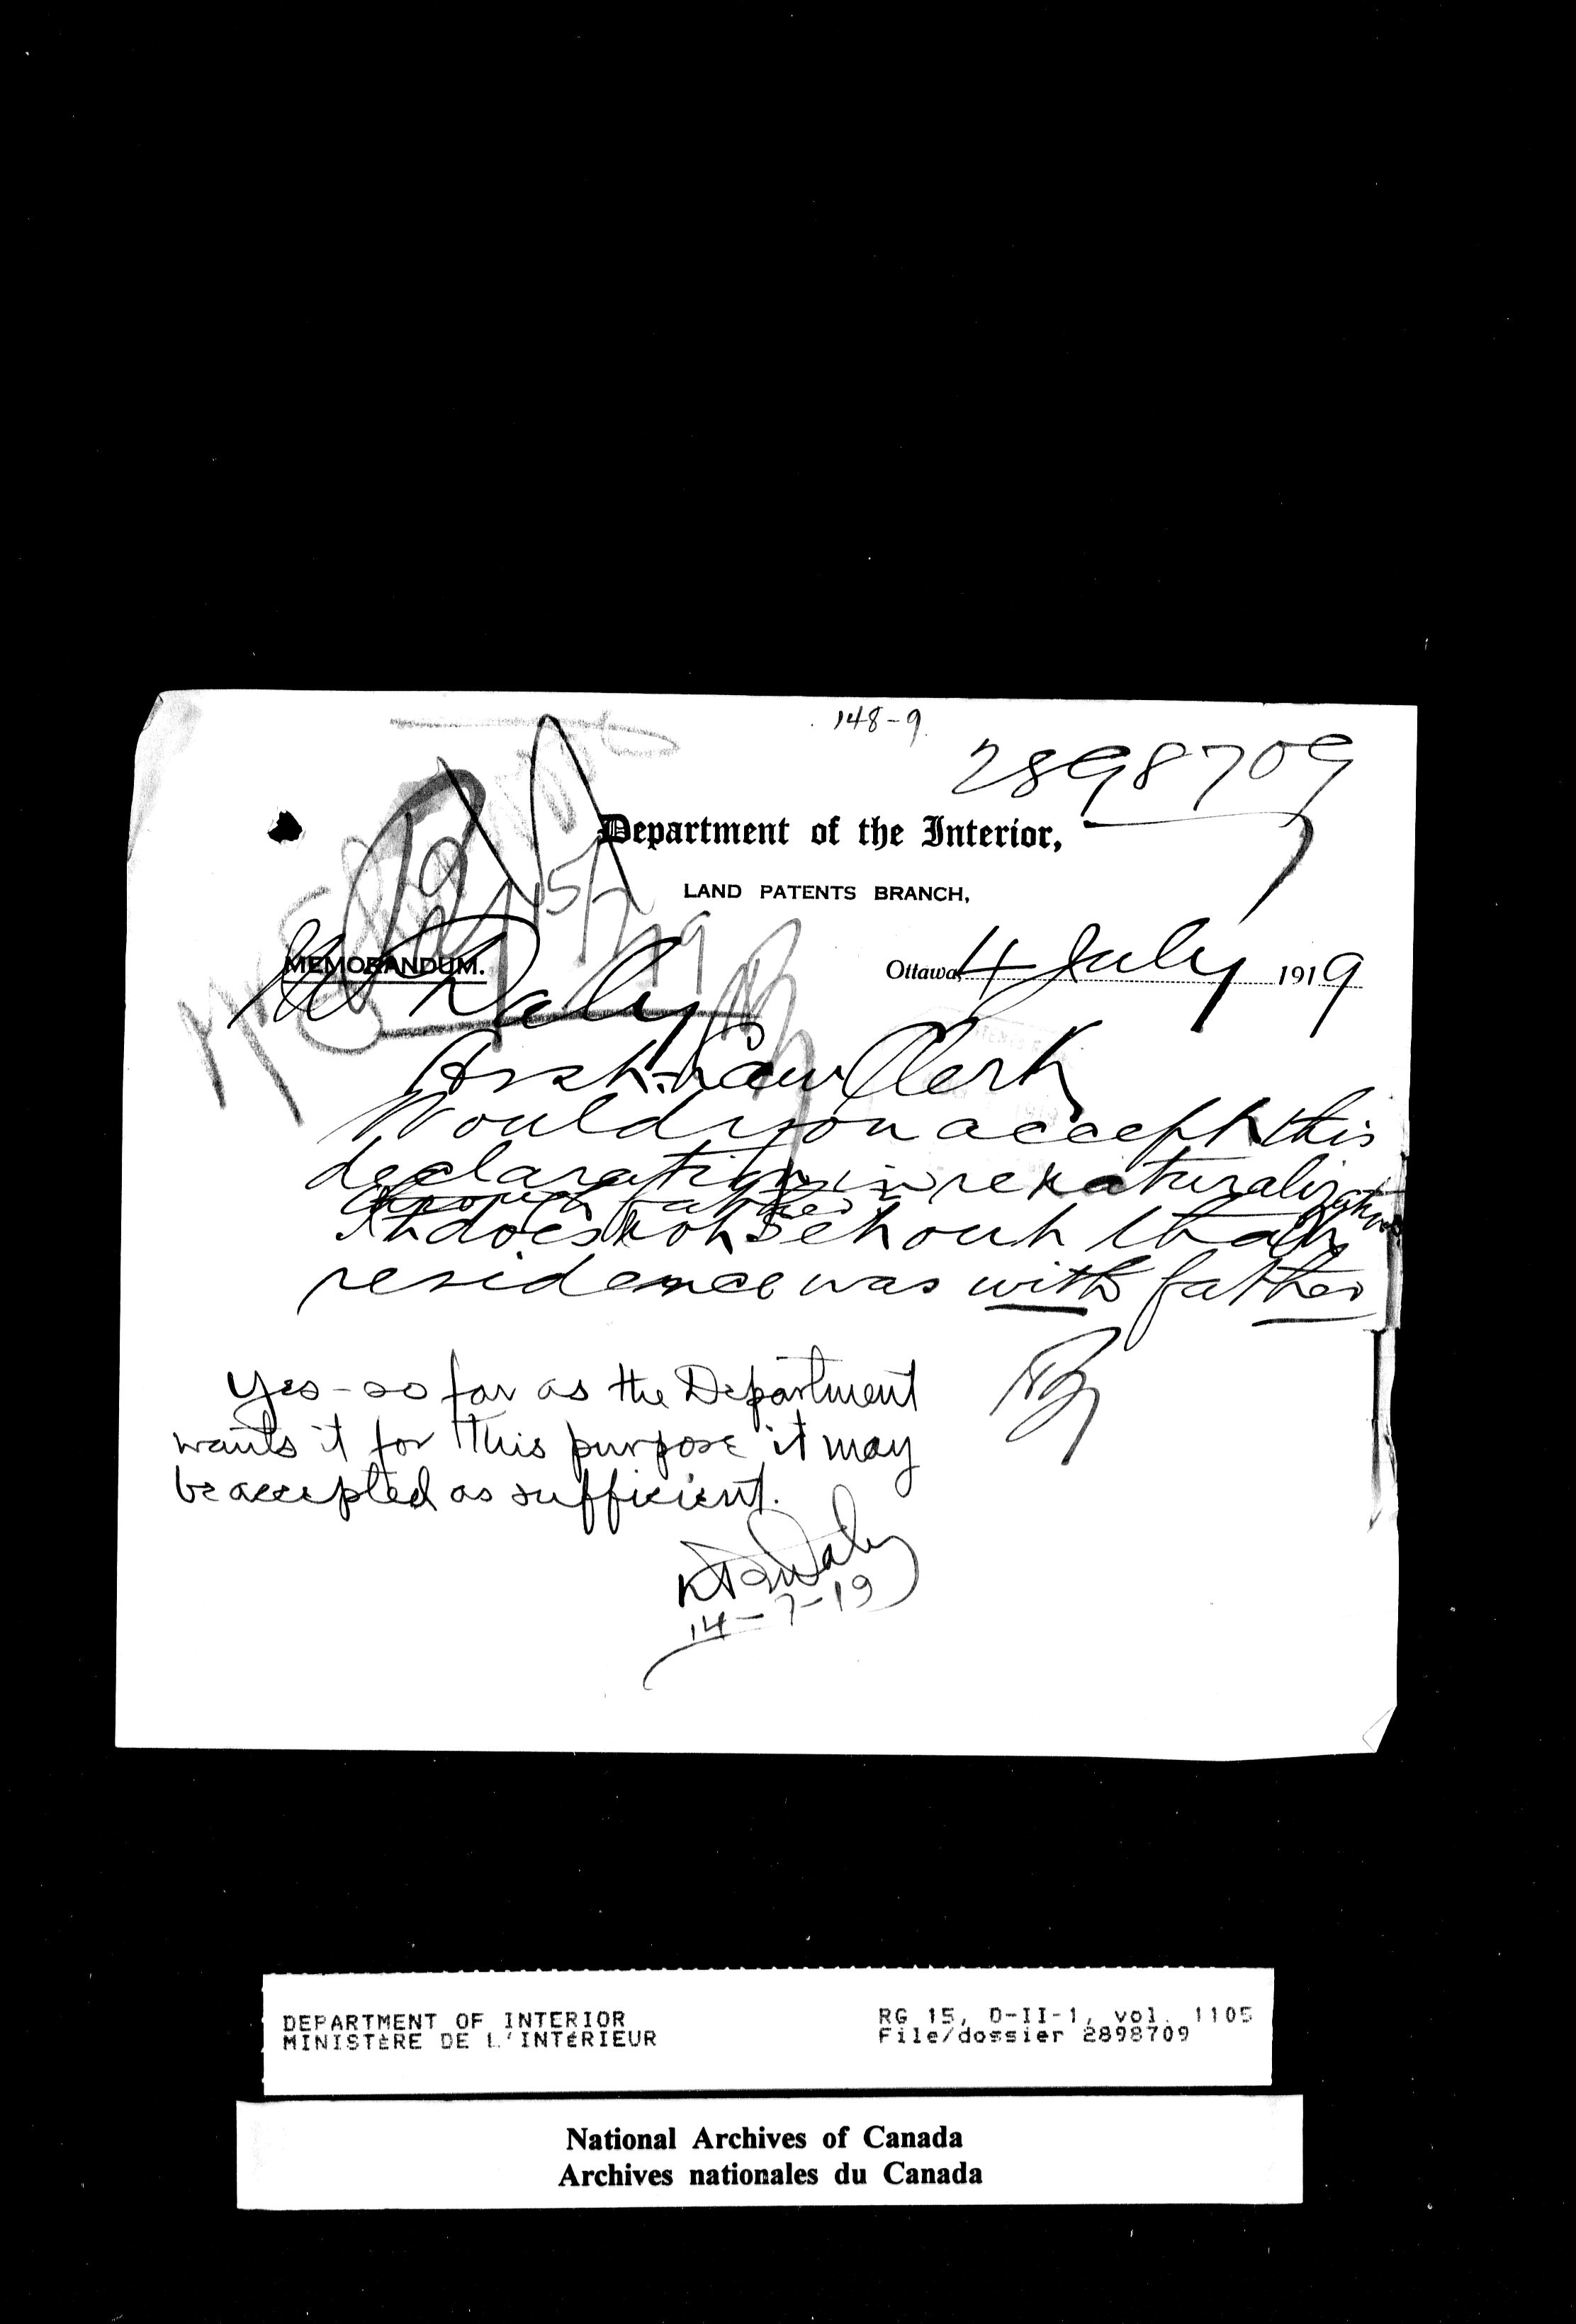 148-9
2898709
Department of the Interior,
LAND PATENTS BRANCH,
MEMORANDUM.
Ottawa, 4 July 1919
15/7/19
Mr Daly
Asst. Law Clerk
Would you accept this
declaration in re naturalization
through father
It does not set out that
residence was with father
Yes - so far as the Department
wants it for this purpose it may
be accepted as sufficient.
Daly
14-7-19
DEPARTMENT OF INTERIOR
MINISTÈRE DE L'INTÉRIEUR
RG 15, D-II-1, vol. 1105
File/dossier 2898709
National Archives of Canada
Archives nationales du Canada